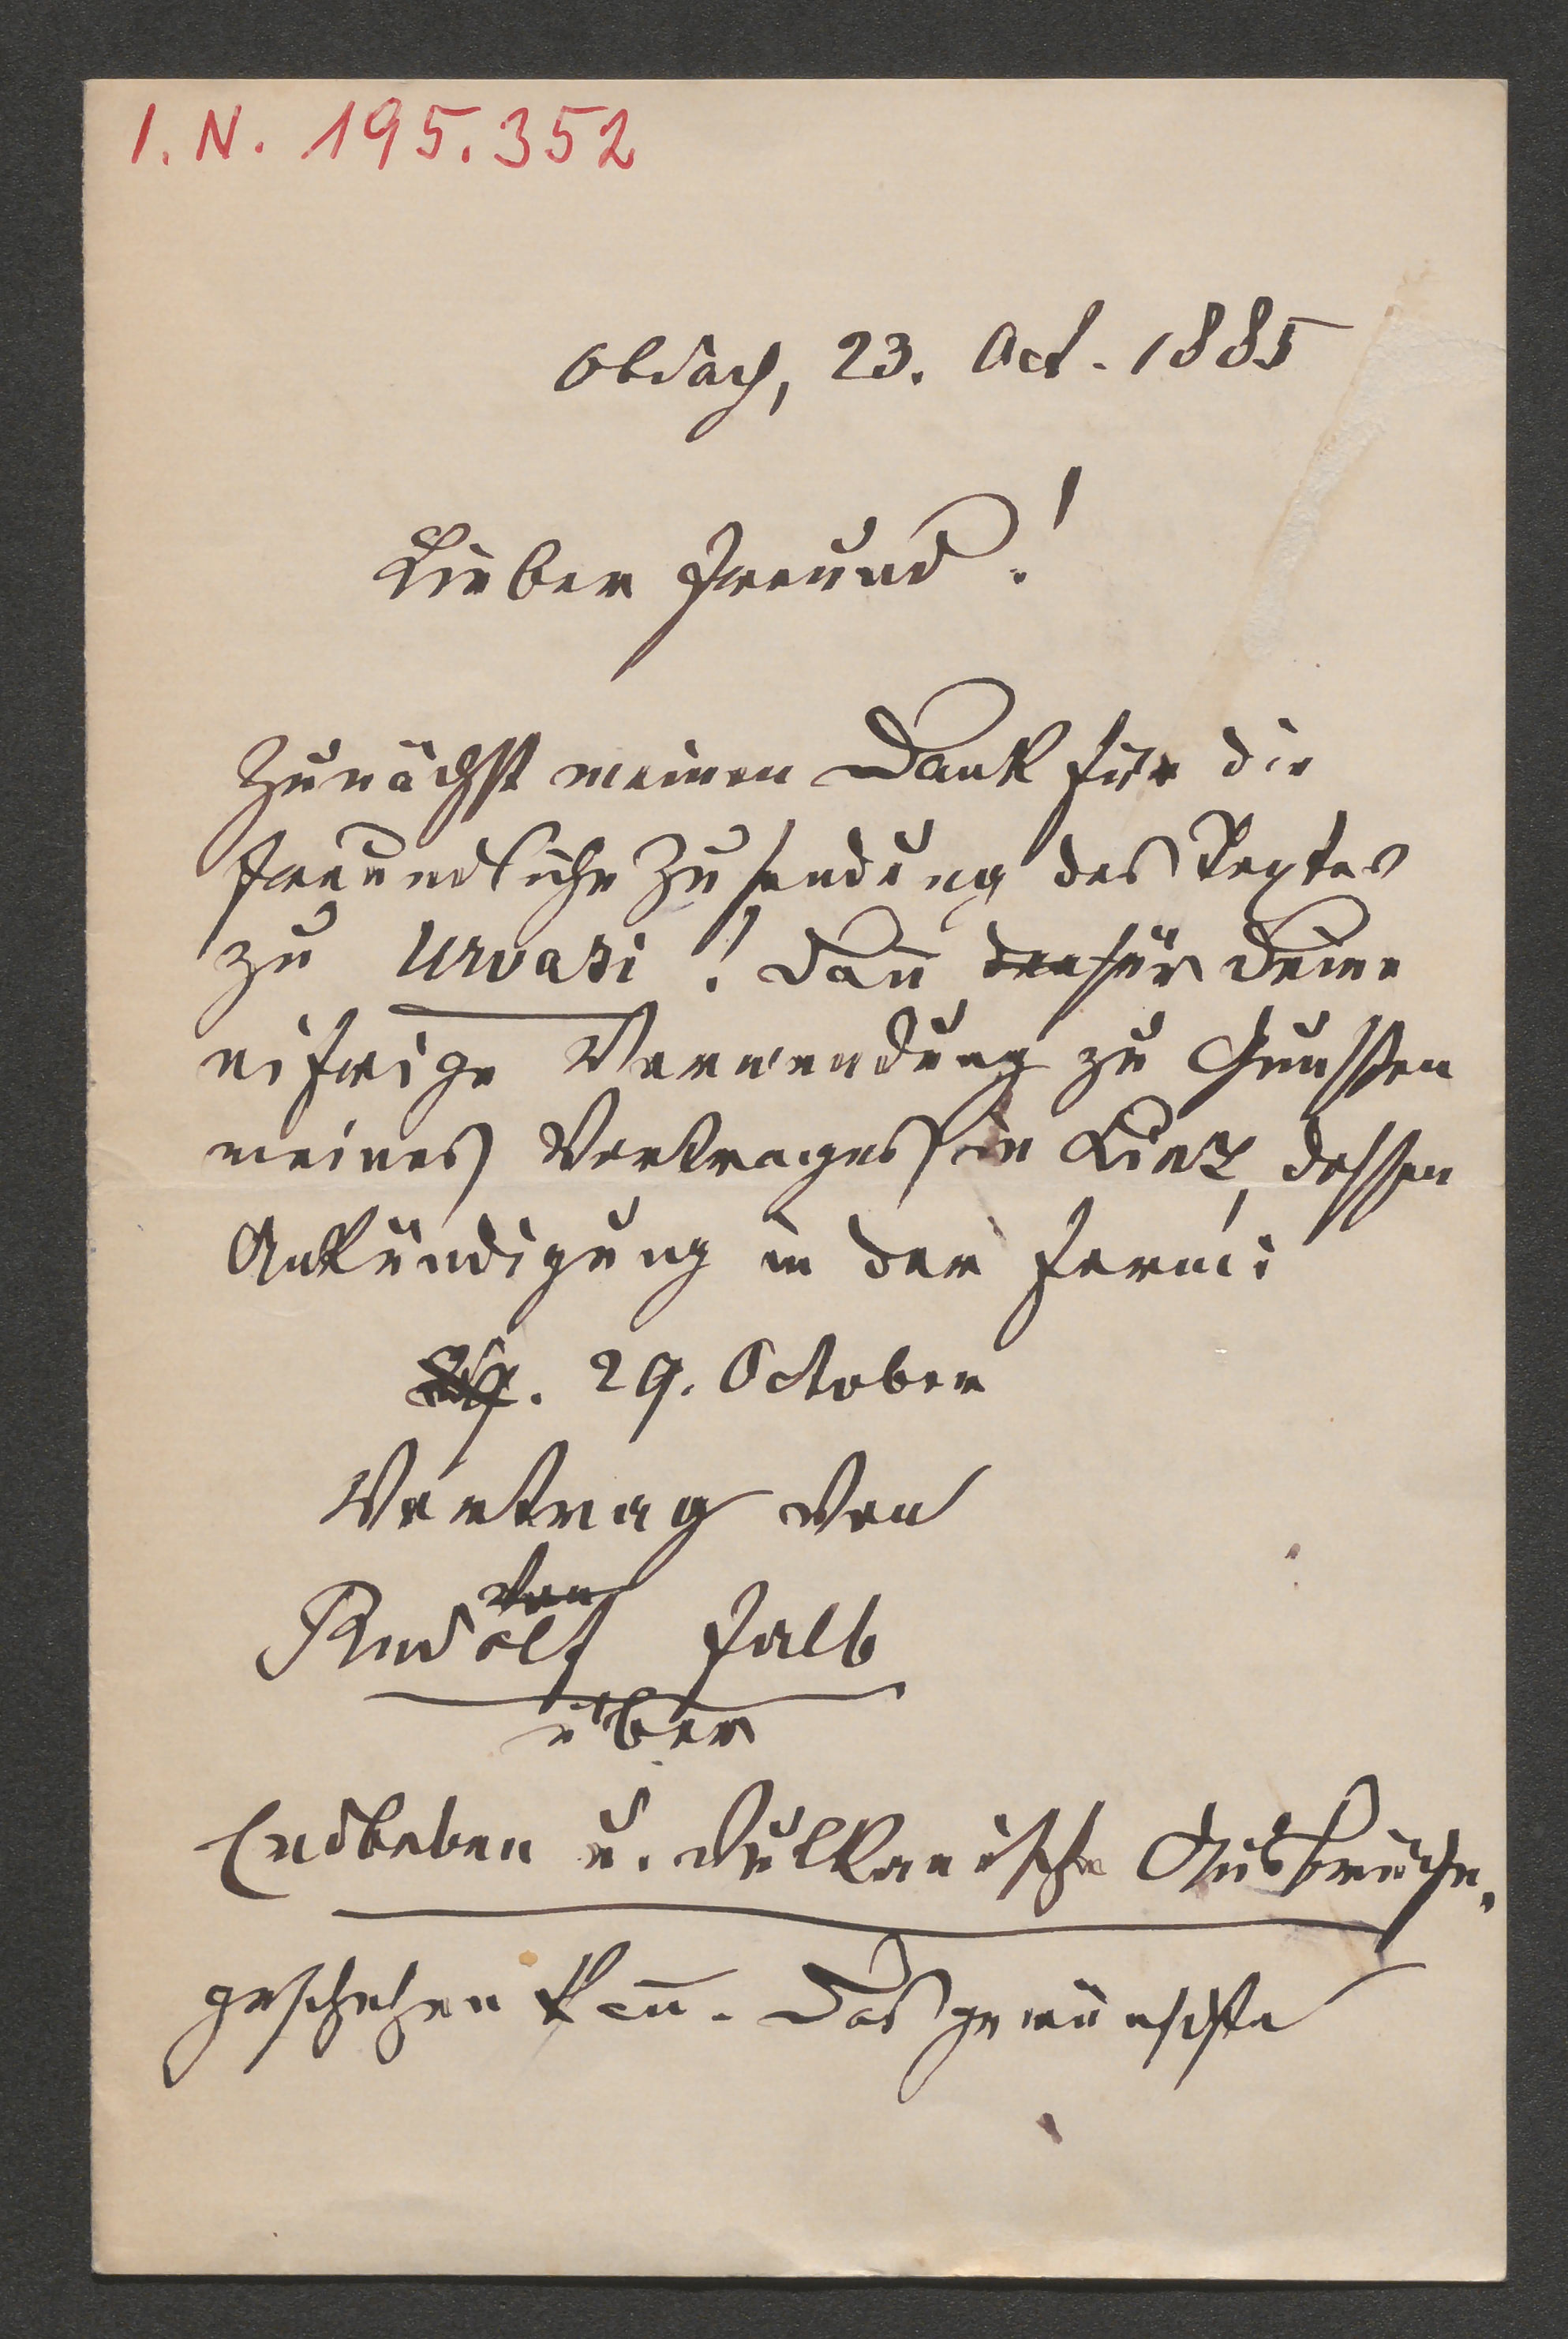 I. N. 195.352
Obdach, 23. Oct. 1885
Lieber Freund!
Zunächst meinen Dank für die
freundliche Zusendung des Textes
zu Urvasi! Dañ für Deine
eifrige Verwendung zu Gunsten
meines Vortrages in Linz, dessen
Ankündigung in der Form:
29. October
Vortrag von
Rudolf Falb
über
Erdbeben u. vulkanische Ausbrüche.
geschehen kañ. Das gewünschte